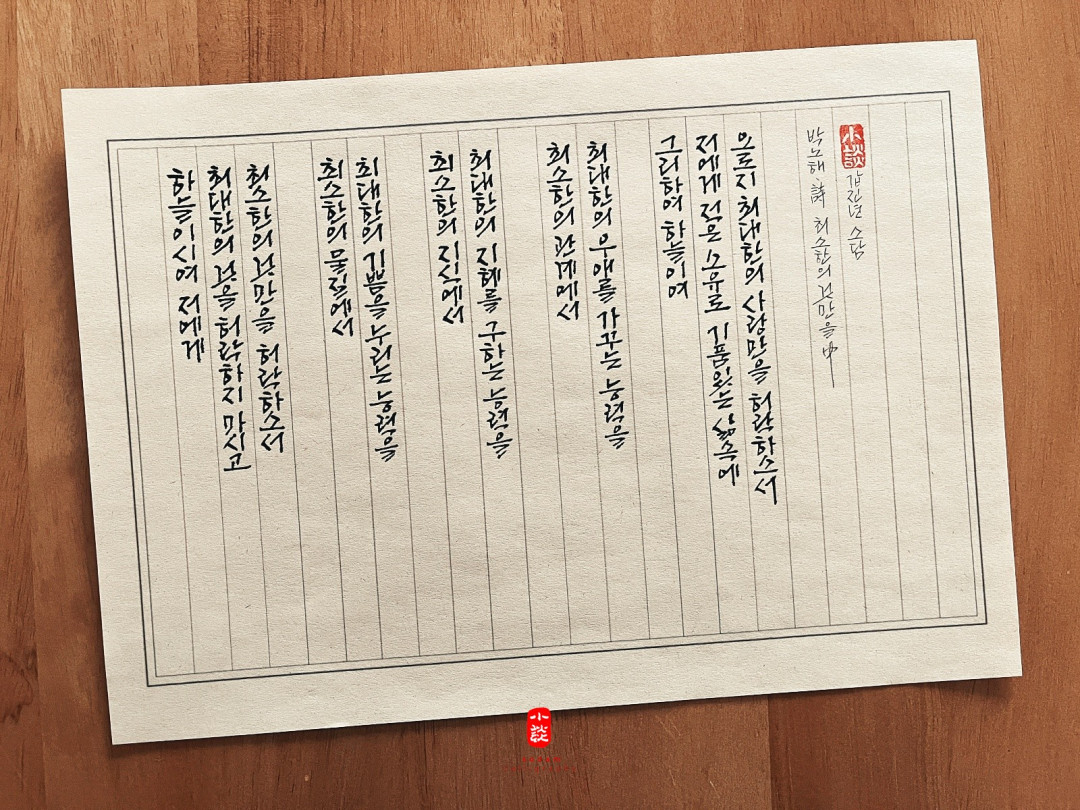 하늘이시여 저에게
최대한의 것을 허락하지 마시고
최소한의 것만을 허락하소서
최소한의 물질에서
최대한의 기쁨을 누리는 능력을
최소한의 지식에서
최대한의 지혜를 구하는 능력을
최소한의 관계에서
최대한의 우애를 가꾸는 능력을
그리하여 하늘이여
저에게 적은 소유로 기품있는 삶속에
오로지 최대한의 사랑만을 허락하소서
박노해 詩 최소한의 것만을 中
小談 갑진년 소담
小談